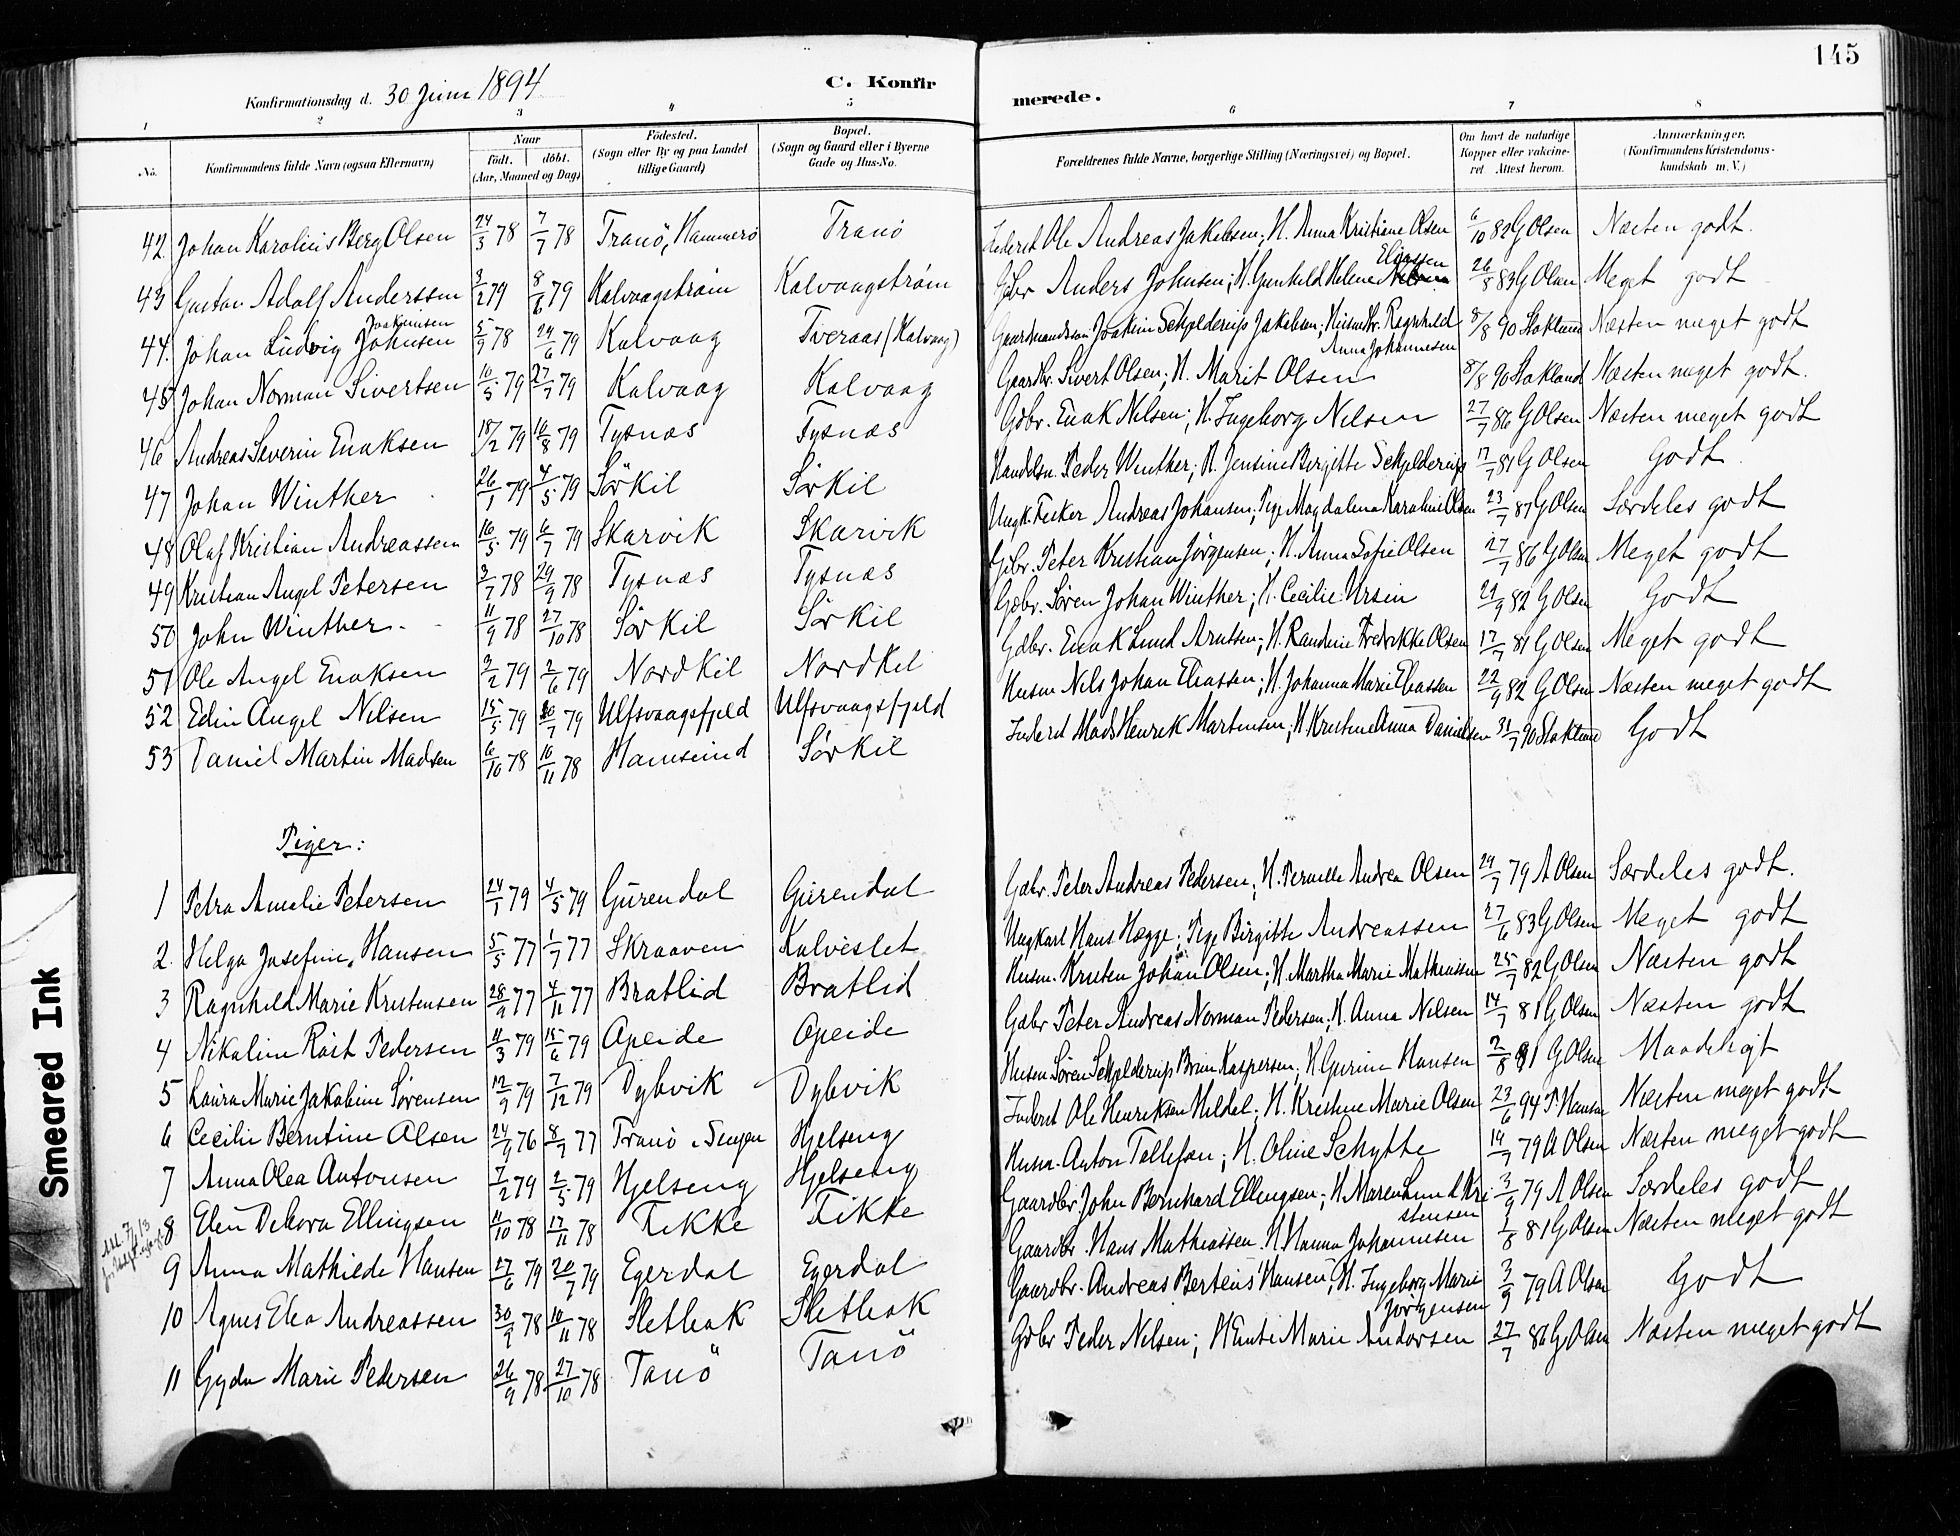 145
Konfirmationsdag d. 30 Juni 1894
C. Konfir
merede.
1 2 3 4 5 6 7 8
No.
Konfirmandens fulde Navn (ogsaa Efternavn)
Naar
født. døbt.
(Aar, Maaned og Dag)
Fødested.
(Sogn eller By og paa Landet
tillige Gaard)
Bopæl.
(Sogn og Gaard eller i Byerne
Gade og Hus-No.
Forældrenes fulde Navne, borgerlige Stilling (Næringsvei) og Bopæl.
Om havt de naturlige
Kopper eller vakcine-
ret Attest herom.
Anmærkninger.
(Konfirmandens Kristendoms-
kundskab m. V.)
42. Johan Karolius Berg Olsen 24/3 78 7/7 78 Tranö, Hammerö Tranö Inderst Ole Andreas Jakobsen; H. Anna Kristiane Olsen 6/10 82 G Olsen Næsten godt.
Eliassen
43 Gustav Adolf Anderssen 3/2 79 8/6 79 Kalvaagstrøm Kalvaagstrøm Gbr Anders Johnsen; H. Gunhild Helene 26/8 83 G Olsen Meget godt
Joakimsen
44. Johan Ludvig Johnsen 5/9 78 29/6 79 Kalvaag Tveraas (Kalvaag) Gaardmandssøn Joakim Schjelderup Jakobsen; Hustru Ragnhild 8/8 90 Stokland Næsten meget godt
Anna Johannesen
45 Johan Norman Sivertsen 10/5 79 27/7 79 Kalvaag Kalvaag Gaardbr. Sivert Olsen; H. Marit Olsen 8/8 90 Stokland Næsten meget godt.
46 Andreas Severin Enoksen 18/2 79 10/8 79 Tysnæs Tysnæs Gdbr. Enok Nilsen; H. Ingeborg Nelsen 27/7 86 G Olsen Næsten meget godt
47 Johan Winther 26/1 79 4/5 79 Sörkil Sørkil Handelsm. Peder Winther; H. Jensine Birgitte Schjelderup 17/7 81 G Olsen Godt
48 Olaf Kristian Andreassen 16/5 79 6/7 79 Skarvik Skarvik Ungk. Fisker Andreas Johansen; Pige Magdalena Karoline Olsen 23/7 87 G Olsen Særdeles godt
49 Kristian Angel Petersen 3/7 78 29/9 78 Tysnæs Tysnæs Gdbr. Peter Kristian Jörgensen; H. Anna Sofie Olsen 27/7 86 G Olsen Meget godt
50 John Winther 11/9 78 27/10 78 Sørkil Sørkil Gdbr. Søren Johan Winther; H. Cecilie Ursin 29/9 82 G Olsen Godt
51 Ole Angel Enoksen 3/2 79 2/6 79 Nordkil Nordkil Gdbr. Enok Lund Arntsen; H. Randine Fredrikke Olsen 17/7 81 G Olsen Meget godt
52 Edin Angel Nilsen 15/5 79 20/7 79 Ulfsvaagsfjeld Ulfsvaagsfjeld Husm Nils Johan Eliassen; H. Johanna Marie Eliassen 22/9 82 G Olsen Næsten meget godt
53 Daniel Martin Madsen 6/10 78 10/11 78 Hamsund Sørkil Inderst Mads Henrik Martensen; H. Kristine Anna Danielsen 31/7 90 Stokland Godt
Piger:
1 Petra Amalie Petersen 24/1 79 4/5 79 Gurendal Gurendal Gdbr. Peter Andreas Pedersen; H. Pernille Andrea Olsen 29/7 79 A Olsen Særdeles godt.
2. Helga Josefine Hansen 5/5 77 1/7 77 Skraaven Kalveslet Ungkarl Hans Hægge; Pige Birgitte Andreassen 27/6 83 G Olsen Meget godt
3 Ragnhild Marie Kristensen 28/9 77 4/11 77 Bratlid Bratlid Husm. Kristen Johan Olsen; H. Martha Marie Mathiassen 25/7 82 G Olsen Næsten godt
4 Nikoline Röst Pedersen 11/3 79 15/6 79 Opeide Opeide Gdbr Peter Andreas Norman Pedersen; H. Anna Nilsen 14/7 81 G Olsen Næsten godt
5 Laura Marie Jakobine Sørensen 12/9 79 7/12 79 Dybvik Dybvik Husm Søren Schjelderup Brun Kaspersen; H Gurine Hansen 2/8 81 G Olsen Maadeligt
6 Cecilie Berntine Olsen 24/9 76 8/7 77 Tranö, Senjen Hjelseng Inderst Ole Henriksen Hildel; H. Kristine Marie Olsen 23/6 94 P. Hansen Næsten meget godt
7 Anna Olea Antonsen 7/2 79 2/5 79 Hjelseng Hjelseng Husm. Anton Tollefsen; H. Oline Schytte 19/7 79 A Olsen Næsten meget godt
8 Elen Debora Ellingsen 11/10 78 17/11 78 Fikke Fikke Gaardbr John Bernhard Ellingsen; H Maren Lund Kri- 3/9 79 A Olsen Særdeles godt
stensen
9 Anna Mathilde Hansen 27/6 79 20/7 79 Egerdal Egerdal Gaardbr. Hans Mathiassen H Hanna Johannesen 1/8 81 G Olsen Næsten meget godt
10 Agnes Elea Andreassen 30/9 78 10/11 78 Sletbak Sletbak Gaardbr. Andreas Berteus Hansen; H. Ingeborg Marie 3/9 79 A Olsen Godt
Jørgensen
11 Gyda Marie Pedersen 26/9 78 27/10 78 Tanö Tanö Gdbr Peder Nilsen; H Ente Marie Andorsen 27/7 86 G Olsen Næsten meget godt
Smeared Ink